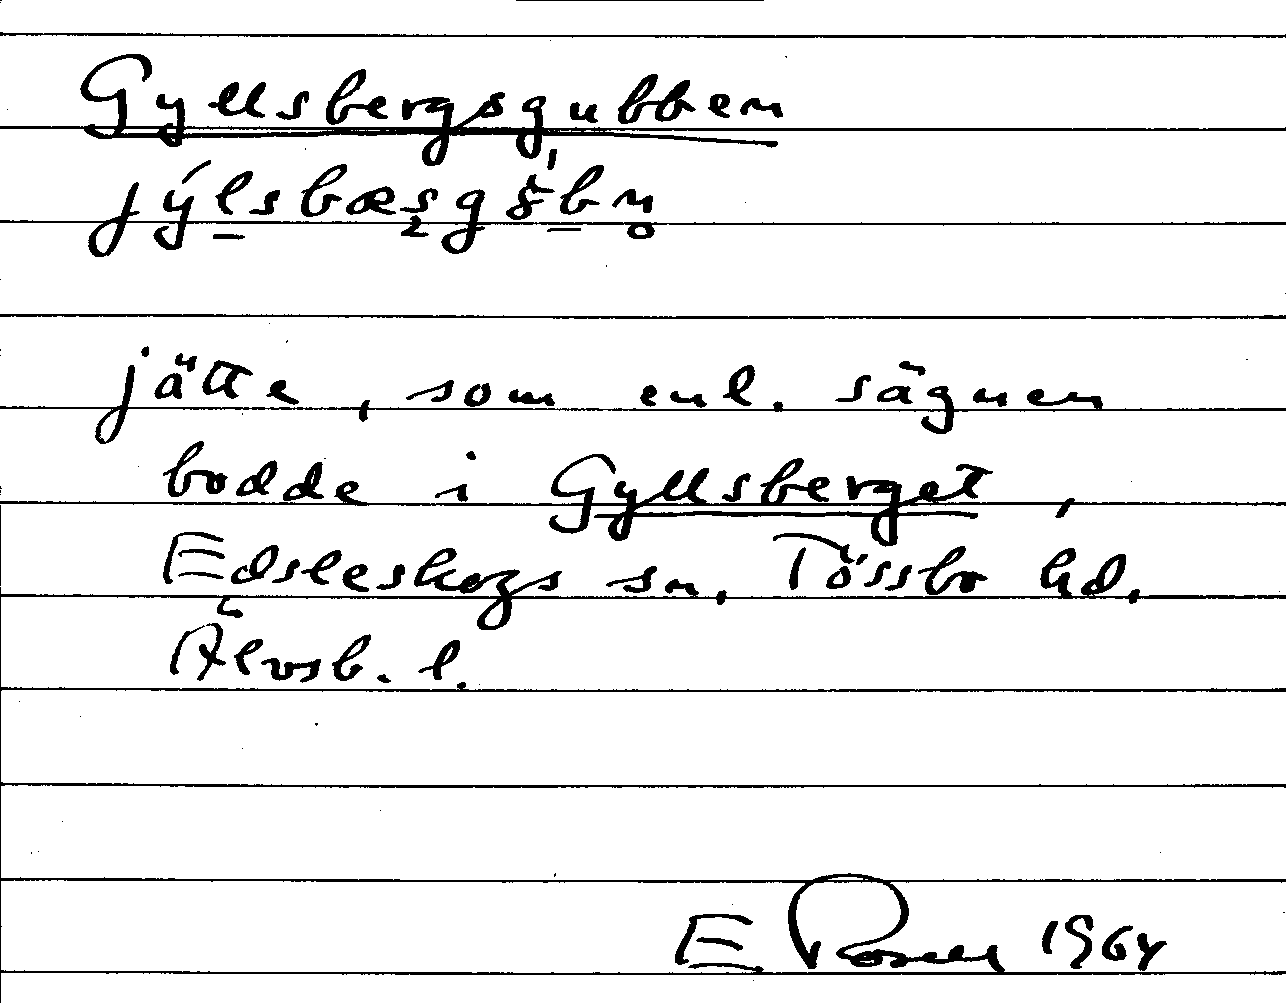 Gyllsbergsgubben
jätte, som enl. sägnen
bodde i Gyllsberget,
Edsleskogs sn, Tössbo hd,
Älvsb. l.
E 1964